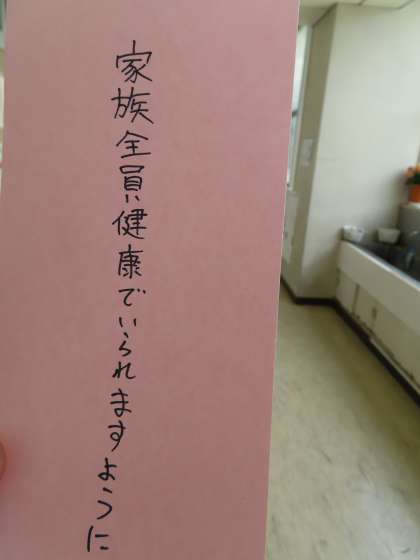 家族全員健康でいられますように